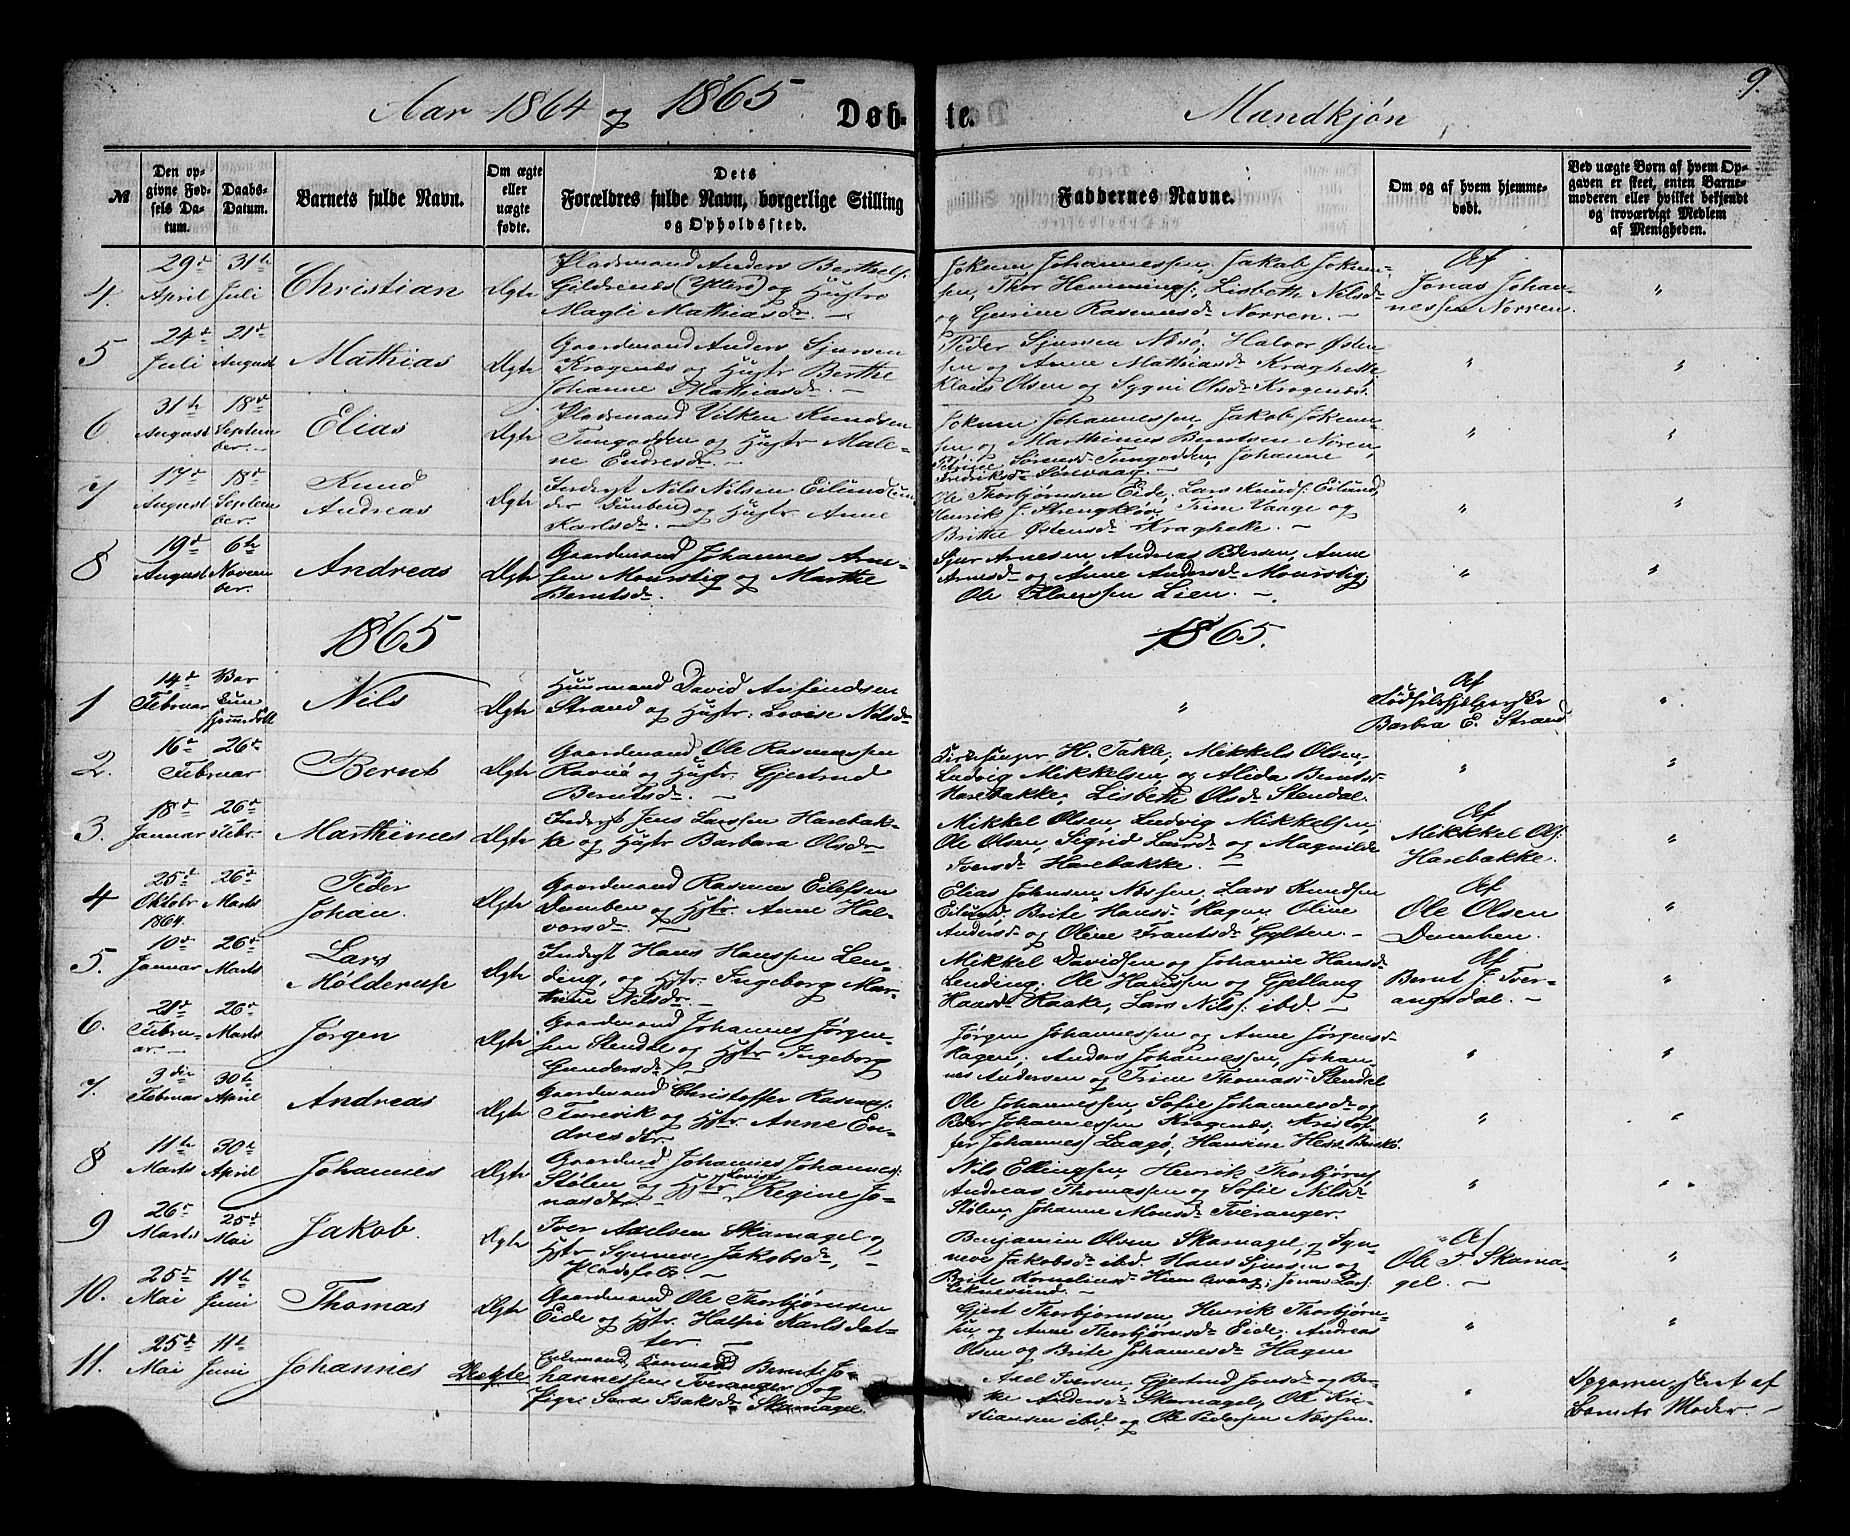 Aar 1864 og 1865 Døb-te. Mandkjøn 9.
№ | Den opgivne Fødsels Datum. | Daabs-Datum. | Barnets fulde Navn. | Om ægte eller uægte fødte. | Dets Forældres fulde Navn, borgerlige Stilling og Opholdssted. | Faddernes Navne. | Om og af hvem hjemmedøbt. | Ved uægte Børn af hvem Opgaven er skeet, enten Barnemoderen eller hvilket bekjendt og troværdigt Medlem af Menigheden.
4. 29d April 31te Juli Christian Ægte
Pladsmand Anders Berthels:
Gildrenæs (Ytterø) og Hustro
Magli Mathiasdr. —
Jokum Johannessen, Jakob Jokum-
sen, Thor Hemmings:, Lisbeth Nilsdr
og Gurine Rasmusdr Norren. —
Af
Jonas Johan-
nessen Norren.
"
5 24d Juli 21d August Mathias Ægte
Gaardmand Anders Sjursen
Krogenæs og Hustr Berthe
Johanne Mathiasdr —
Peder Sjursen Næsø, Halvor Østen
sen og Anne Mathiasdr Kraghelle
Klaus Olsen og Sygni Olsdr Krogenæs.
" "
6 31te August 18de September. Elias Ægte
Pladsmand Vilken Knudsen
Tungodden og Hustr Male-
ne Endresdr. —
Jokum Johannessen, Jakob Jokum-
sen og Marthinus Berntsen Nøren,
Petrine Sørensdr Tungodden, Johanne
Fredriksdr Sørevaag. —
" "
7 17d August 18de September Knud Andreas Ægte
Inderst Nils Nilsen Eilund (un
der Dumben) og Hustr Anne
Karlsdr. —
Ole Thorbjørnsen Eide, Lars Knuds: Eilund,
Henrik J. Strengkløv, Trine Vaage og
Brithe Østensdr Kraghelle. —
" "
8 19d August 6te November. Andreas Ægte
Gaardmand Johannes Arne-
sen Mourstig og Marthe
Berntsdr.
Sjur Arnesen, Andreas Pedersen, Anne
Arnesdr og Anne Andersdr Mourstig,
Ole Elevssen Lien. —
" "
1865 1865.
1 14d Februar Var kun hjemmedøbt Nils Ægte
Huusmand David Arfindsen
Strand og Hustr: Lovise Nilsdr
"
Af
Fødselshjælperske
Barbra E. Strand
"
2. 16d Februar 26de Bernt Ægte
Gaardmand Ole Rasmussen
Ravnø og Hustr: Gjertrud
Berntsdr. —
Kirkesanger H. Takle, Mikkels Olsen,
Ludvig Mikkelsen og Alida Berntsdr
Harebakke, Lisbeth Olsdr Stendal.
" "
3. 18d Januar 26d Febr. Marthinus Ægte
Inderst Jens Larssen Harebak-
ke og Hustr Barbara Olsdr
Mikkel Olsen, Ludvig Mikkelsen,
Ole Olsen, Sigrid Larsdr og Magnilde
Iversdr Harebakke.
Af
Mikkkel Ols:
Harebakke.
"
4 25d Oktobr 1864. 26d Marts Peder Johan. Ægte
Gaardmand Rasmus Eilefsen
Dumben og Hstr. Anne Hal-
vorsdr. —
Elias Johnsen Næssen, Lars Knudsen
Eilund, Brite Hansdr Hagen, Oline
Andersdr og Oline Frantsdr Gylten. —
Af
Ole Olsen
Dumben.
"
5. 10d Januar 26d Marts Lars Mølderup Ægte
Inderst Hans Hanssen Len-
ding, og Hstr. Ingeborg Mar-
thine Nilsdr. —
Mikkel Davidsen og Johanne Hansdr
Lending, Ole Hanssen og Gjetlaug
Hansdr Raake, Lars Nils: ibd. —
Af
Bernt J. Tver-
angsdal. —
"
6. 21d Februar. — 26d Marts Jørgen Ægte
Gaardmand Johannes Jørgen-
sen Stendal og Hstr Ingeborg
Gundersdr. —
Jørgen Johannessen og Anne Jørgensdr
Hagen, Anders Johannessen, Johan-
nes Andersen og Trine Thomasdr Stendal
" "
7. 3die Februar 30te April Andreas Ægte
Gaardmand Christoffer Rasmus:
Tarevik og Hstr. Anne En-
dresdtr.
Ole Johannessen, Sofie Johannesdr og
Peder Johannessen Krogenæs, Kristof-
fer Johannes: Laagø, Hansine Hess Buskø.
" "
8 11te Marts 30te April Johannes Ægte
Gaardmd Johannes Johannes:
Stølen og Hstr Lovise Regine Jo-
nasdtr. —
Nils Ellingsen, Henrik Thorbjørns,
Andreas Thomassen og Sofie Nilsdr
Stølen, Johanne Monsdr Tveranger.
" "
9 26d Marts 25d Mai Jakob. Ægte
Iver Axelsen Skarnagel og
Hstr Synneve Jakobsdr,
Pladsfolk. —
Benjamin Olsen Skarnagel, og Syn-
neve Jakobsdr ibd. Hans Sjursen og
Brite Kornelinsdr, Jonas Lars:
Af
Ole T. Skarna-
gel. —
"
10. 25d Mai 11te Juni Thomas Ægte
Gaardmand Ole Thorbjørnsen
Eide og Hstr. Karlsdat-
ter. —
Gjert Thorbjørnsen, Henrik Thorbjørn-
sen og Anne Thorbjørnsdr Eide, Andreas
Olsen og Brite Johannesdr Hagen
" "
11. 25d Mai 11te Juni Johannes Uægte
Bernt Jo-
hannessen Tveranger og
Pige Sara Isaksdr Skarnagel.
Axel Iversen, Gjertrud Jonsdr og Be-
Andersdr Skarnagel, Ole Kri-
stiansen ibd, og Ole Pedersen Næssen.
"
Opgaven skeet af
Barnets Moder. —